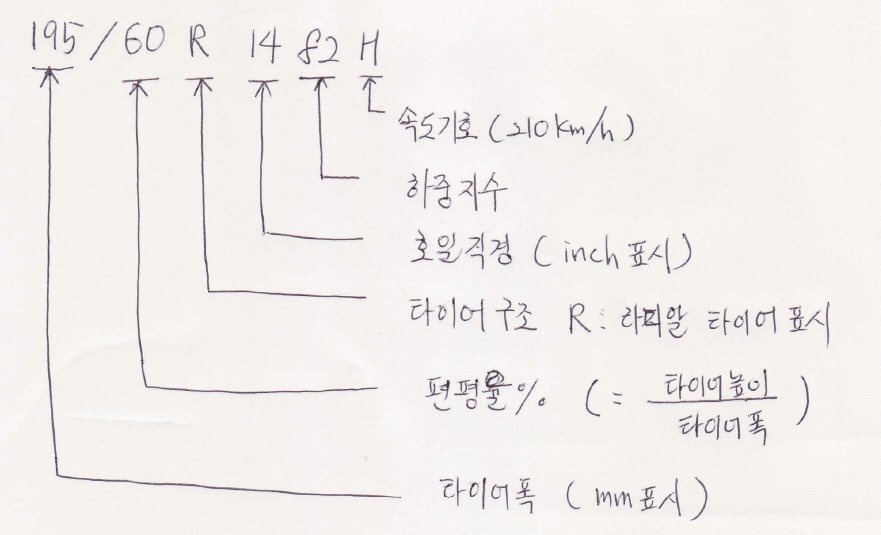 195 / 60 R 14 82 H
속도기호 (210km/h)
하중지수
호일직경 (inch 표시)
타이어구조 R : 라디알 타이어 표시
편평율% ( = 타이어높이 / 타이어폭 )
타이어폭 (mm표시)